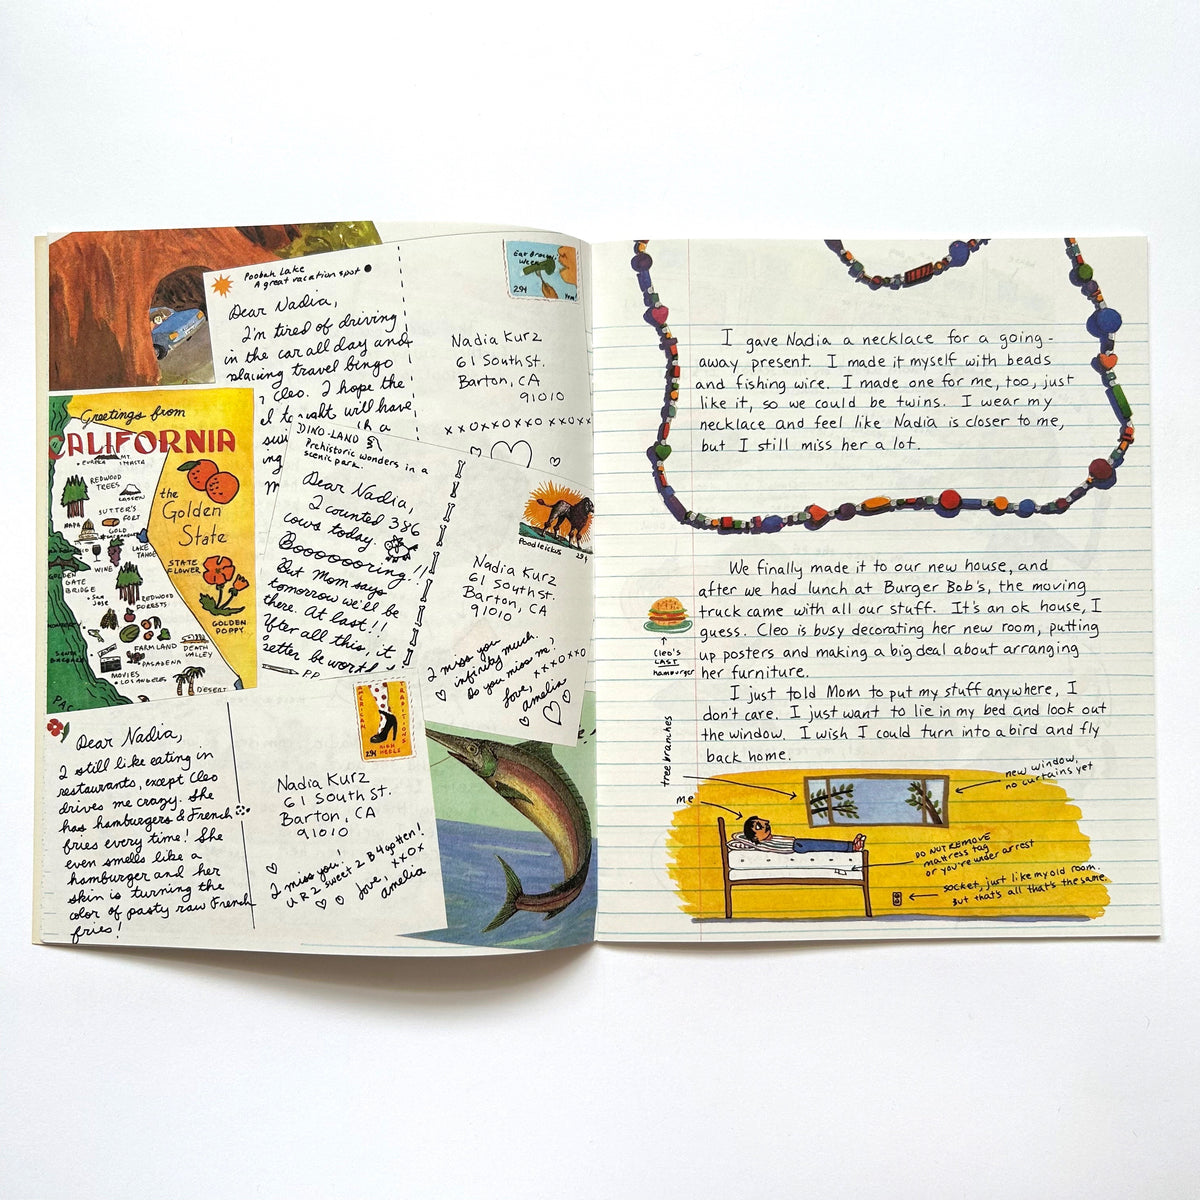 Poobah Lake
A great vacation spot
Dear Nadia,
I'm tired of driving
in the car all day and
playing travel bingo
Cleo. I hope the
will have
Ear
Week
29¢
Yum!
Nadia Kurz
61 South St.
Barton, CA
91010
x x o x x x x o x x x
Greetings from
CALIFORNIA
the
Golden
State
EUREKA
MT. SHASTA
REDWOOD
TREES
LASSEN
SUTTER'S
FORT
NAPA
GOLD
LAKE
TAHOE
WINE
GOLDEN
GATE
BRIDGE
SAN
JOSE
REDWOOD
FORESTS
STATE
FLOWER
GOLDEN
POPPY
FARMLAND
DEATH
VALLEY
PASADENA
SANTA BARBARA
MOVIES
LOS ANGELES
DESERT
PAC
DINO-LAND
Prehistoric wonders in a
scenic park.
Dear Nadia,
I counted 386
cows today.
Booooooring!!
But Mom says
tomorrow we'll be
there. At last!!
After all this, it
better be worth
Poodleickus
29¢
Nadia Kurz
61 South St.
Barton, CA
91010
I miss you
infinity much.
Do you miss me?
love, xxxoxxo
amelia
Dear Nadia,
I still like eating in
restaurants, except Cleo
drives me crazy. She
has hamburgers & French
fries every time! She
even smells like a
hamburger and her
skin is turning the
color of pasty raw French
fries!
AMERICAN
TRADITIONS
29¢
HIGH
HEELS
Nadia Kurz
61 South St.
Barton, CA
91010
I miss you!
U R 2 sweet 2 B 4 gotten!
love, xxox
amelia
I gave Nadia a necklace for a going-
away present. I made it myself with beads
and fishing wire. I made one for me, too, just
like it, so we could be twins. I wear my
necklace and feel like Nadia is closer to me,
but I still miss her a lot.
We finally made it to our new house, and
after we had lunch at Burger Bob's, the moving
truck came with all our stuff. It's an ok house, I
guess. Cleo is busy decorating her new room, putting
up posters and making a big deal about arranging
her furniture.
Cleo's
LAST
hamburger
I just told Mom to put my stuff anywhere, I
don't care. I just want to lie in my bed and look out
the window. I wish I could turn into a bird and fly
back home.
tree branches
me
new window,
no curtains yet
DO NOT REMOVE
mattress tag
or you're under arrest
socket, just like my old room.
But that's all that's the same.